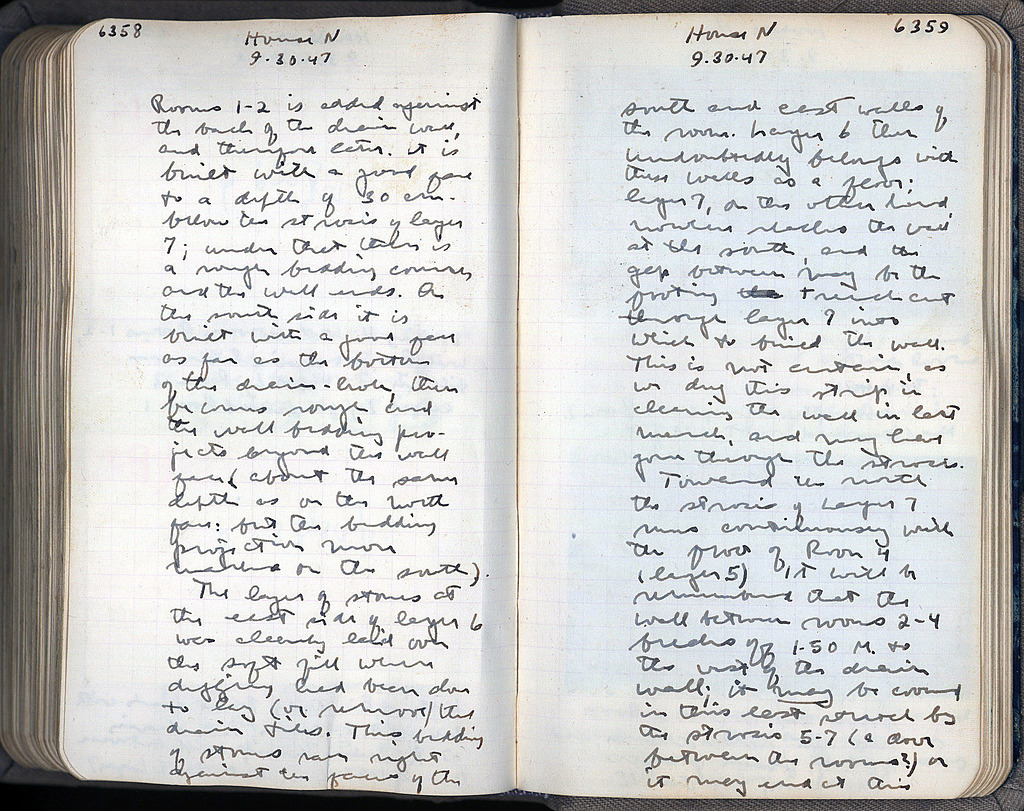 6358
House N
9.30.47
Rooms 1-2 is added against
the back of the drain wall,
and therefore later. It is
built with a good face
to a depth of 30 cm.
below the strosis of layer
7; under that there is
a rough bedding course
and the wall ends. On
the south side it is
built with a good face
as far as the bottom
of the drain-hole, then
becomes rough and
the wall bedding pro-
jects beyond the wall
face (about the same
depth as on the north
face: but the bedding
projection more
marked on the south).
The layer of stones at
the east side of layer 6
was clearly laid over
the soft fill where
digging had been done
to lay (or remove) the
drain tiles. This bedding
of stones ran right
against the faces of the
6359
House N
9.30.47
south and east walls of
the room. Layer 6 then
undoubtedly belongs with
these walls as a floor;
layer 7, on the other hand,
nowhere reaches the wall
at the south, and the
gap between may be the
footing trench cut
through layer 7 into
which to build the wall.
This is not certain, as
we dug this strip in
clearing the wall in last
March, and may have
gone through the strosis.
Toward the north
the strosis of Layer 7
runs continuously with
the floor of Room 4
(layer 5) It will be
remembered that the
wall between rooms 2-4
breaks off 1.50 M. to
the west of the drain
wall; it may be covered
in this last stretch by
the strosis 5-7 (a door
between the rooms?) or
it may end at this